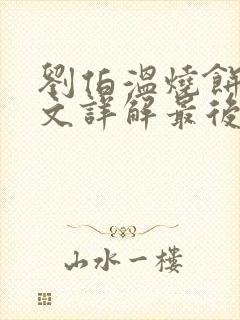 劉伯溫燒餅
文詳解最後
山水一樓